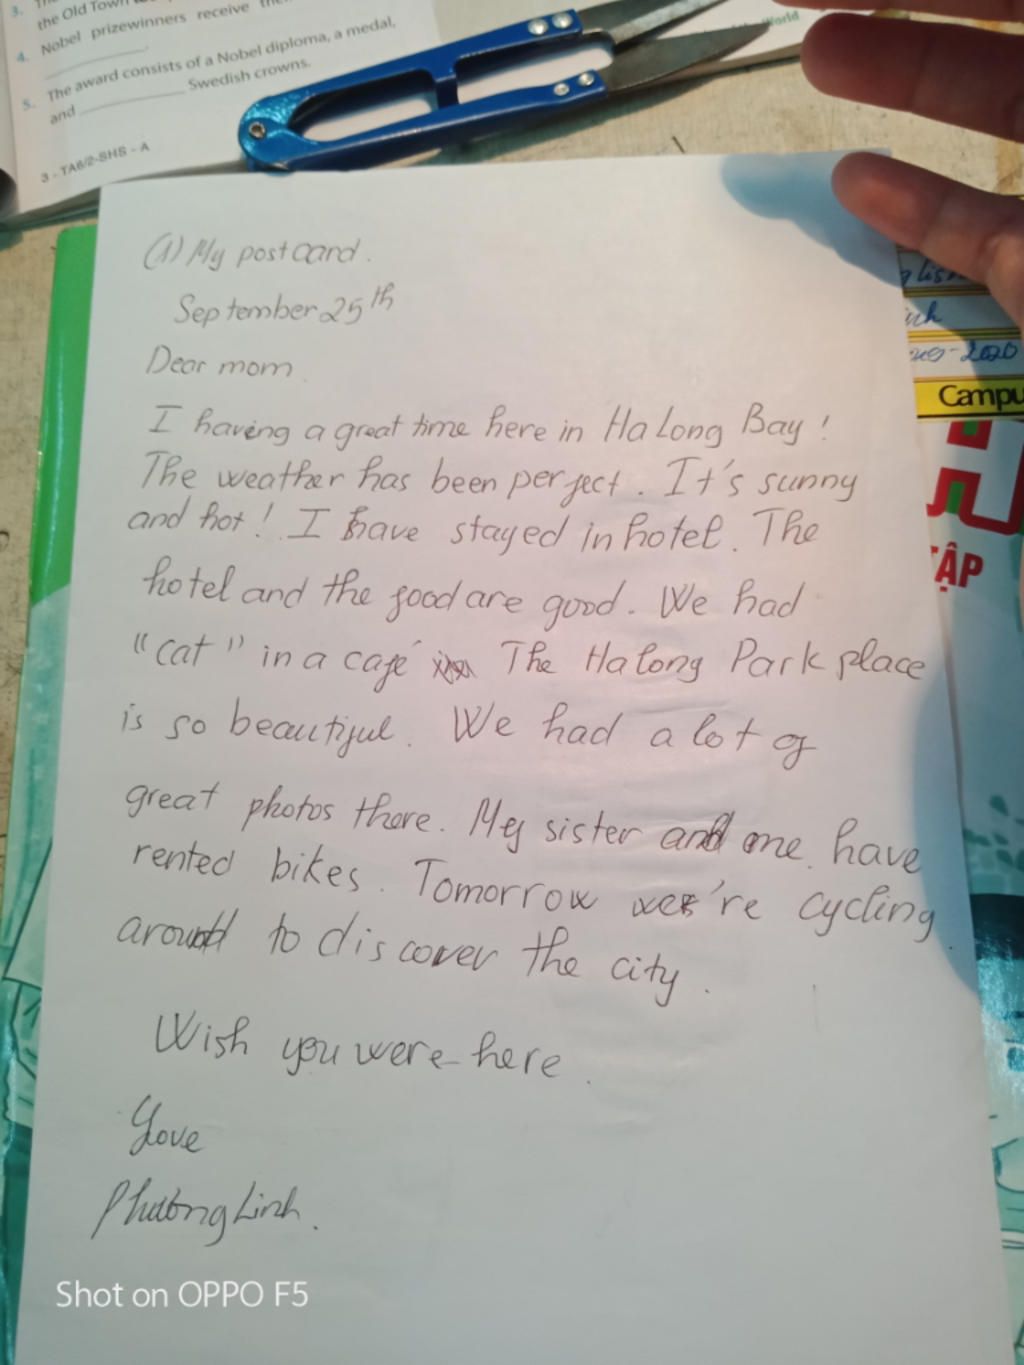 3.
the Old Town
4. Nobel prizewinners receive
5. The award consists of a Nobel diploma, a medal,
and ____________ Swedish crowns.
3 - TA6/2-SHS - A
World
(1) My postcard.
September 25th
Dear mom
I having a great time here in Ha Long Bay!
The weather has been perfect. It's sunny
and hot! I have stayed in hotel. The
hotel and the food are good. We had
"cat" in a café The Ha Long Park place
is so beautiful. We had a lot of
great photos there. My sister and me have
rented bikes. Tomorrow we're cycling
around to discover the city.
Wish you were here.
Love
Phương Linh.
2020
Campu
TẬP
Shot on OPPO F5